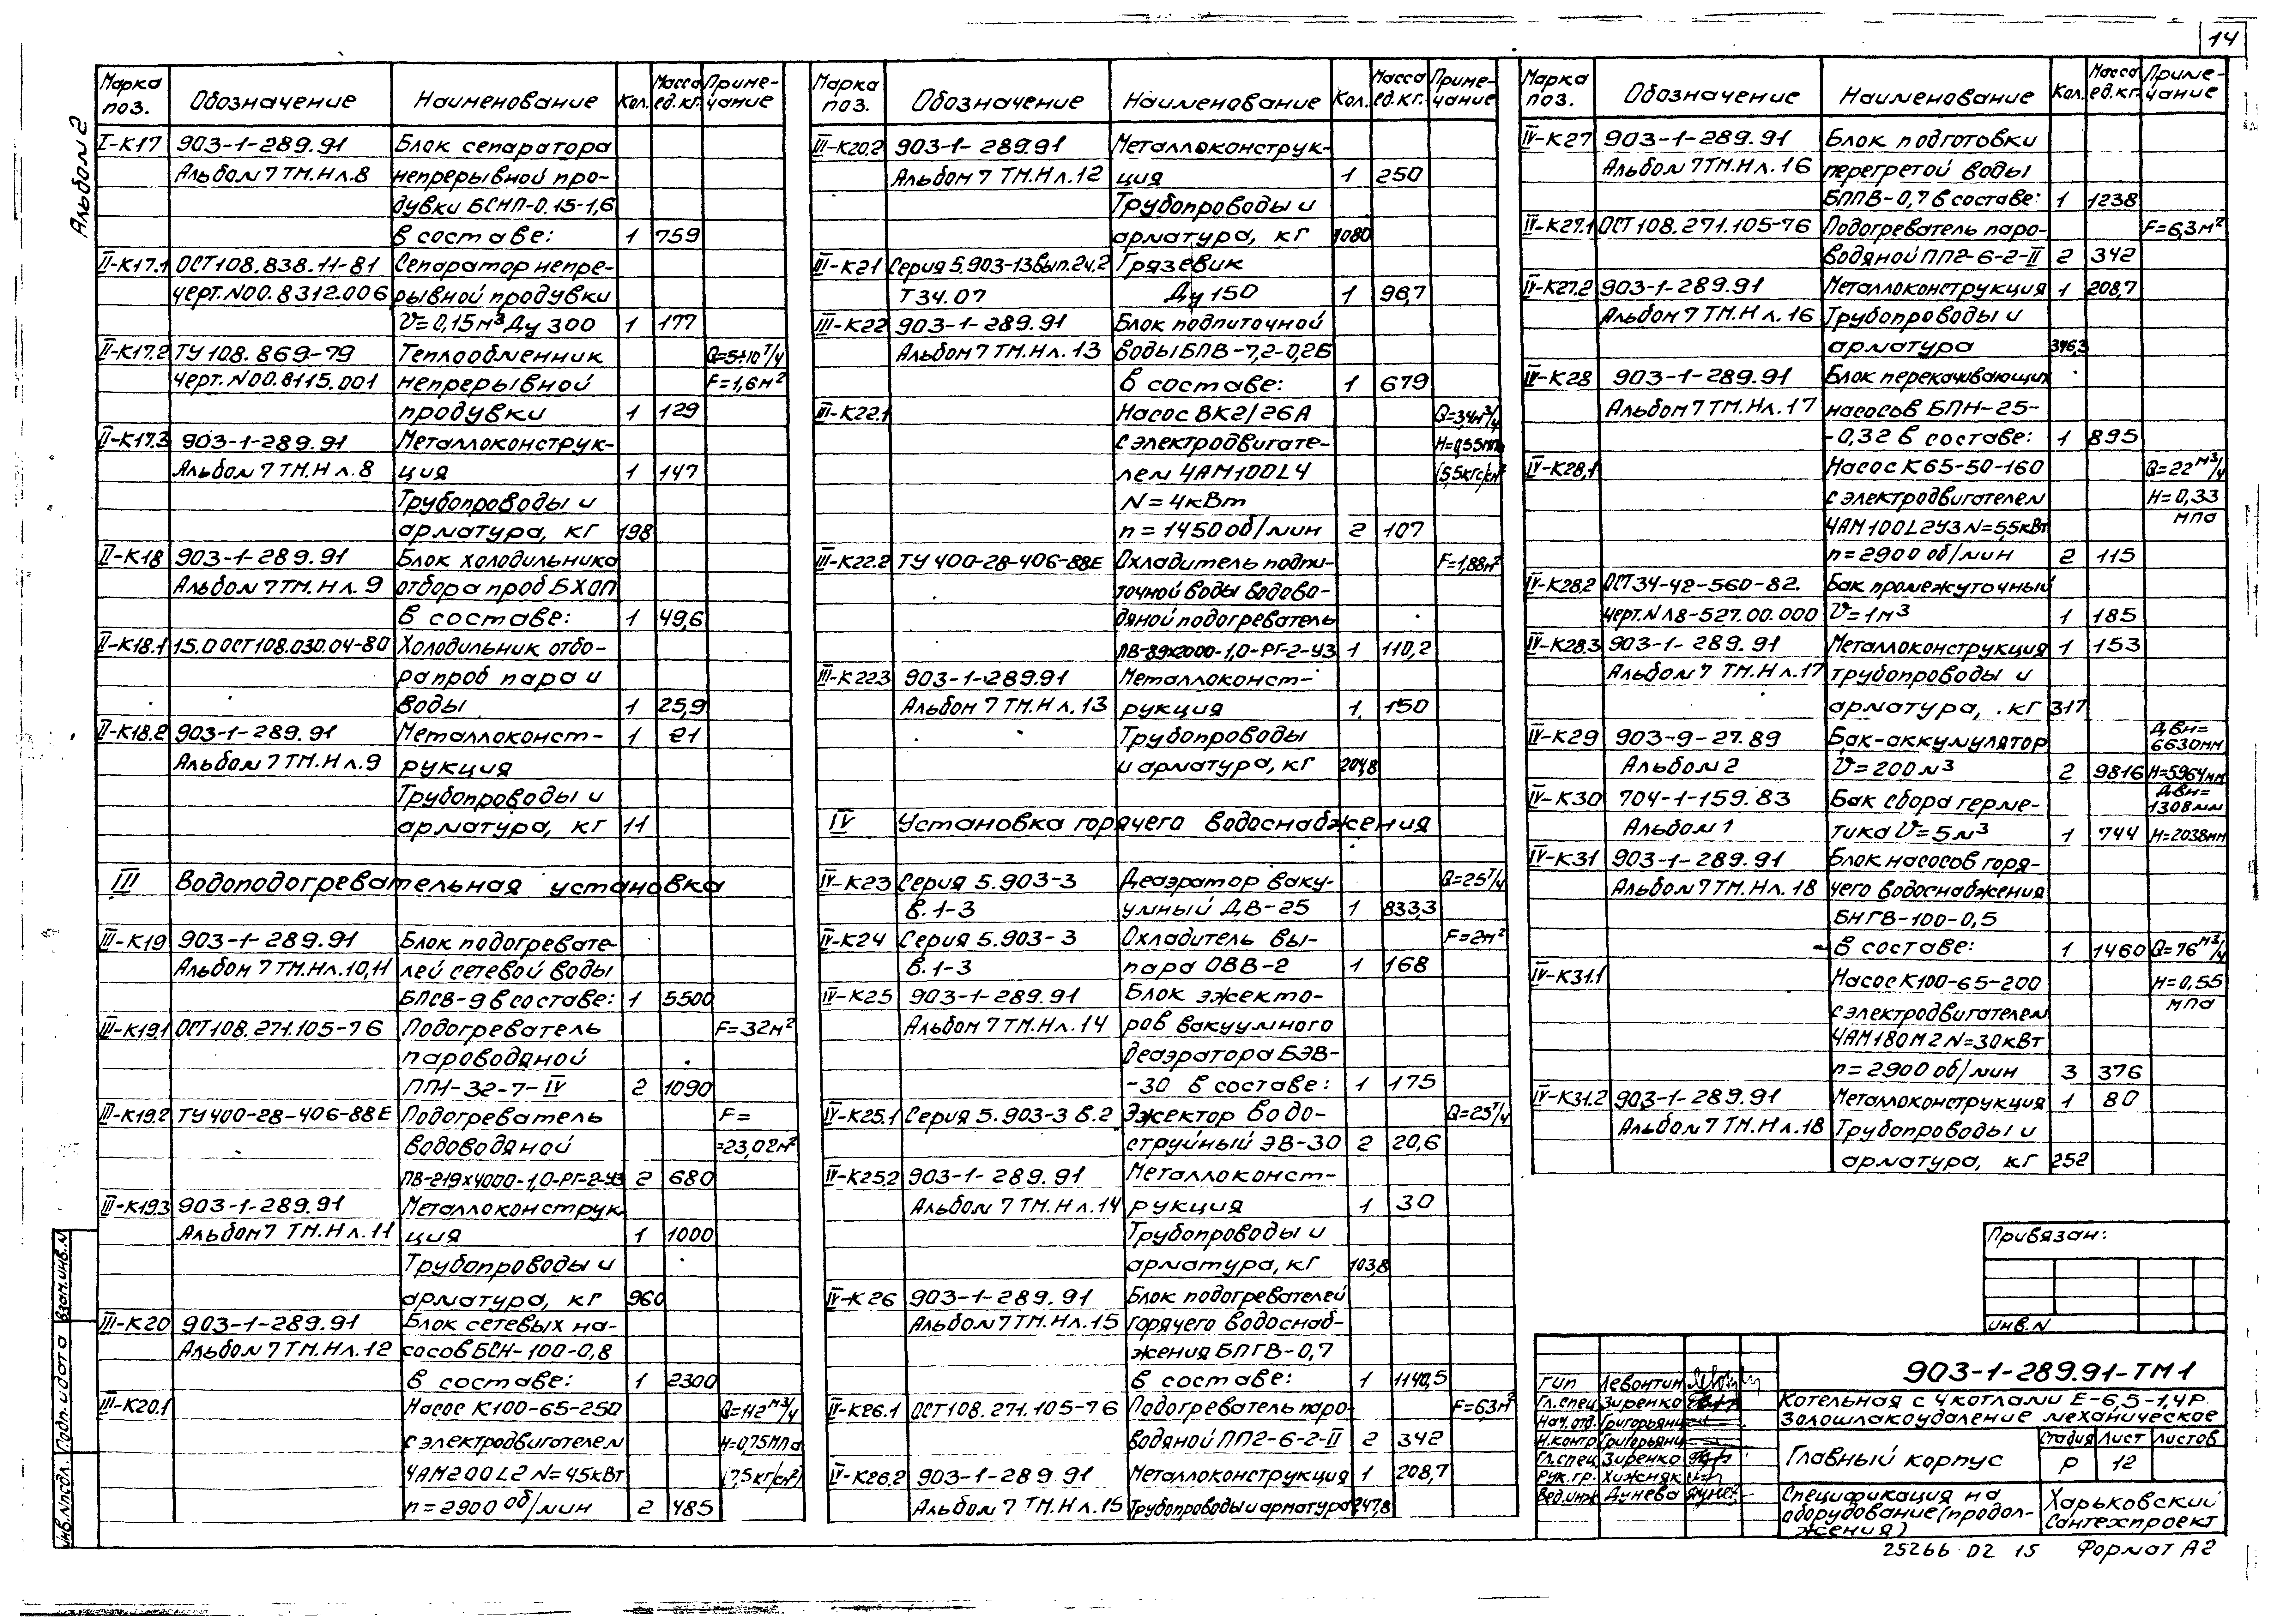 14
Альбом 2
Марка поз. Обозначение Наименование Кол. Масса ед.кг. Примечание
I-К17 903-1-289.91 Блок сепаратора
Альбом 7 ТМ.Н л.8 непрерывной про-
дувки БСНП-0.15-1,6
в составе: 1 759
II-К17.1 ОСТ108.838.11-81 Сепаратор непре-
черт.N00.8312.006 рывной продувки
V=0,15м³ Ду 300 1 177
II-К17.2 ТУ 108.869-79 Теплообменник Q=5÷10т/ч
черт.N00.8115.001 непрерывной F=1,6м²
продувки 1 129
II-К17.3 903-1-289.91 Металлоконструк-
Альбом 7 ТМ.Н л.8 ция 1 147
Трубопроводы и
арматура, кг 198
II-К18 903-1-289.91 Блок холодильника
Альбом 7ТМ.Н л. 9 отбора проб БХОП
в составе: 1 49,6
II-К18.1 15.0 ОСТ108.030.04-80 Холодильник отбо-
ра проб пара и
воды 1 25,9
II-К18.2 903-1-289.91 Металлоконст- 1 21
Альбом 7 ТМ.Н л.9 рукция
Трубопроводы и
арматура, кг 11
III Водоподогревательная установка
III-К19 903-1-289.91 Блок подогревате-
Альбом 7 ТМ.Н л.10,11 лей сетевой воды
БПСВ-9 в составе: 1 5500
III-К19.1 ОСТ108.271.105-76 Подогреватель F=32м²
пароводяной
ПП1-32-7-IV 2 1090
III-К19.2 ТУ400-28-406-88Е Подогреватель F=
водоводяной =23,02м²
ПВ-219х4000-1,0-РГ-2-У3 2 680
III-К19.3 903-1-289.91 Металлоконструк-
Альбом 7 ТМ.Н л.11 ция 1 1000
Трубопроводы и
арматура, кг 960
III-К20 903-1-289.91 Блок сетевых на-
Альбом 7 ТМ.Н л.12 сосов БСН-100-0,8
в составе: 1 2300
III-К20.1 Насос К100-65-250 Q=112 м³/ч
с электродвигателем Н=0,75МПа
4АМ200L2 N=45кВт (7,5кг/см²)
n=2900 об/мин 2 485
Марка поз. Обозначение Наименование Кол. Масса ед.кг. Примечание
III-К20.2 903-1-289.91 Металлоконструк-
Альбом 7 ТМ.Н л.12 ция 1 250
Трубопроводы и
арматура, кг 1080
III-К21 Серия 5.903-13вып.2ч.2 Грязевик
Т34.07 Ду 150 1 96,7
III-К22 903-1-289.91 Блок подпиточной
Альбом 7 ТМ.Нл.13 воды БПВ-7,2-0,2Б
в составе: 1 679
III-К22.1 Насос ВК2/26А Q=3,4м³/ч
с электродвигате- Н=0,55МПа
лем 4АМ100L4 (5,5кгс/см²
N=4кВт
n=1450 об/мин 2 107
III-К22.2 ТУ 400-28-406-88Е Охладитель подпи- F=1,88м²
точной воды водово-
дяной подогреватель
ПВ-89х2000-1,0-РГ-2-У3 1 110,2
III-К22.3 903-1-289.91 Металлоконст-
Альбом 7 ТМ.Н л.13 рукция 1 150
Трубопроводы
и арматура, кг 204,8
IV Установка горячего водоснабжения
IV-К23 Серия 5.903-3 Деаэратор ваку- Q=25т/ч
в.1-3 умный ДВ-25 1 833,3
IV-К24 Серия 5.903-3 Охладитель вы- F=2м²
в.1-3 пара ОВВ-2 1 168
IV-К25 903-1-289.91 Блок эжекто-
Альбом 7 ТМ.Нл.14 ров вакуумного
деаэратора БЭВ-
-30 в составе: 1 175
IV-К25.1 Серия 5.903-3 в.2 Эжектор водо- Q=25т/ч
струйный ЭВ-30 2 20,6
IV-К25.2 903-1-289.91 Металлоконст-
Альбом 7 ТМ.Н л.14 рукция 1 30
Трубопроводы и
арматура, кг 103,8
IV-К26 903-1-289.91 Блок подогревателей
Альбом 7 ТМ.Н л.15 горячего водоснаб-
жения БПГВ-0,7
в составе: 1 1140,5
IV-К26.1 ОСТ108.271.105-76 Подогреватель паро- F=6,3м²
водяной ПП2-6-2-II 2 342
IV-К26.2 903-1-289.91 Металлоконструкция 1 208,7
Альбом 7 ТМ.Н л.15 Трубопроводы и арматура 247,8
Марка поз. Обозначение Наименование Кол. Масса ед.кг. Примечание
IV-К27 903-1-289.91 Блок подготовки
Альбом 7ТМ.Н л.16 перегретой воды
БППВ-0,7 в составе: 1 1238
IV-К27.1 ОСТ 108.271.105-76 Подогреватель паро- F=6,3м²
водяной ПП2-6-2-II 2 342
IV-К27.2 903-1-289.91 Металлоконструкция 1 208,7
Альбом 7 ТМ.Н л.16 Трубопроводы и
арматура 346,3
IV-К28 903-1-289.91 Блок перекачивающих
Альбом 7 ТМ.Н л.17 насосов БПН-25-
-0,32 в составе: 1 895
IV-К28.1 Насос К65-50-160 Q=22м³/ч
с электродвигателем Н=0,33
4АМ100L2У3 N=5,5кВт МПа
n=2900 об/мин 2 115
IV-К28.2 ОСТ34-42-560-82. Бак промежуточный
черт.N Л8-527.00.000 V=1м³ 1 185
IV-К28.3 903-1-289.91 Металлоконструкция 1 153
Альбом 7 ТМ.Н л.17 трубопроводы и
арматура, кг 317
IV-К29 903-9-27.89 Бак-аккумулятор Двн=6630мм
Альбом 2 V=200м³ 2 9816 Н=5964мм
IV-К30 704-1-159.83 Бак сбора герме- Двн=1308мм
Альбом 1 тика V=5м³ 1 744 Н=2038мм
IV-К31 903-1-289.91 Блок насосов горя-
Альбом 7 ТМ.Н л.18 чего водоснабжения
БНГВ-100-0,5
в составе: 1 1460 Q=76м³/ч
IV-К31.1 Насос К100-65-200 Н=0,55
с электродвигателем МПа
4АМ180М2 N=30кВт
n=2900 об/мин 3 376
IV-К31.2 903-1-289.91 Металлоконструкция 1 80
Альбом 7 ТМ.Н л.18 Трубопроводы и
арматура, кг 252
Привязан:
инв.N
903-1-289.91-ТМ1
Котельная с 4 котлами Е-6,5-1,4Р.
Золошлакоудаление механическое
Главный корпус
Стадия Лист Листов
Р 12
Спецификация на
оборудование (продол-
жения)
Харьковский
Сантехпроект
ГИП Левонтин
Гл.спец Зиренко
Нач.отд. Григорьянц
Н.контр Григорьянц
Гл.спец Зиренко
Рук.гр. Хижняк
Вед.инж Дунева
25266 02 15 Формат А2
Взам.инв.N
Подп. и дата
Инв.Nподл.